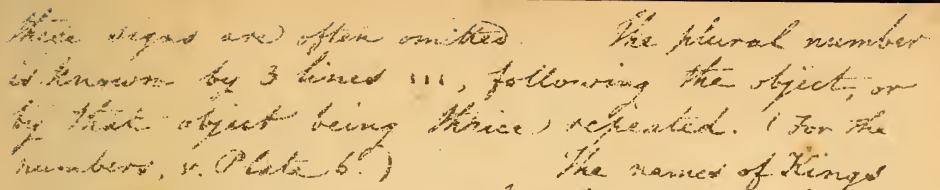 these signs are often omitted. The plural number
is known by 3 lines ııı, following the object, or
by that object being thrice repeated. (For the
numbers, v. Plate 6.) The names of Kings